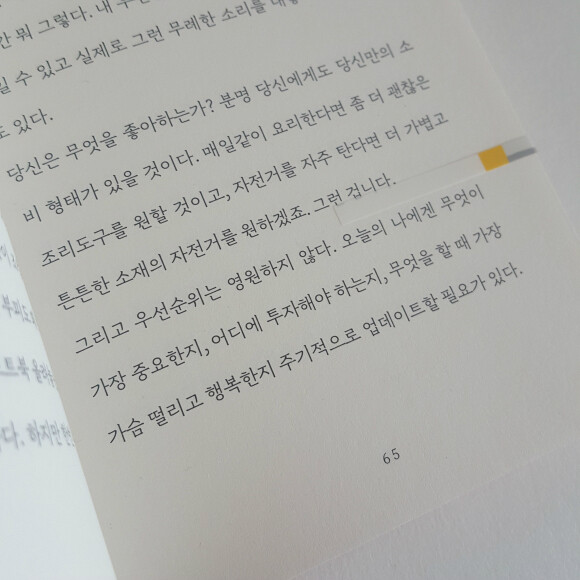 뭐 그렇다. 내
수 있고 실제로 그런 무례한 소리를
있다.
당신은 무엇을 좋아하는가? 분명 당신에게도 당신만의 소
비 형태가 있을 것이다. 매일같이 요리한다면 좀 더 괜찮은
조리도구를 원할 것이고, 자전거를 자주 탄다면 더 가볍고
튼튼한 소재의 자전거를 원하겠죠. 그런 겁니다.
그리고 우선순위는 영원하지 않다. 오늘의 나에겐 무엇이
가장 중요한지, 어디에 투자해야 하는지, 무엇을 할 때 가장
가슴 떨리고 행복한지 주기적으로 업데이트할 필요가 있다.
65
하지만